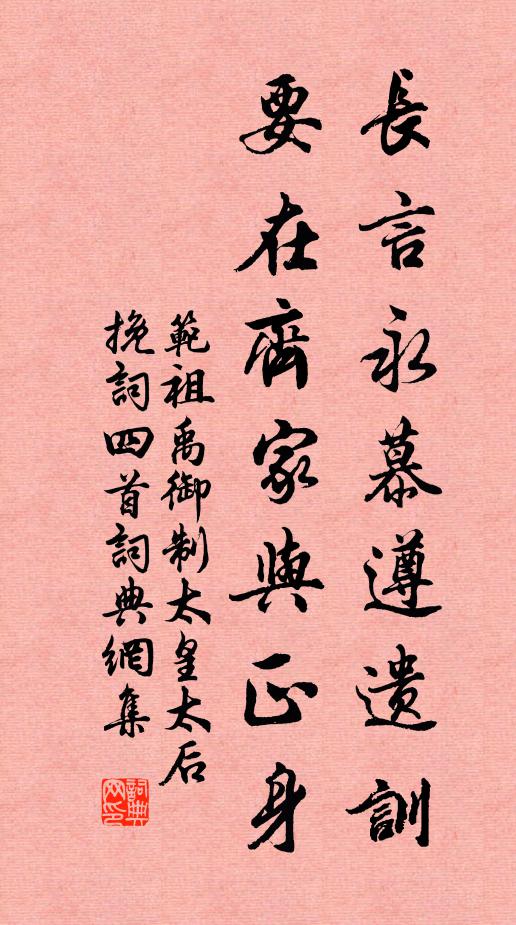 長言永慕遵遺訓
要在齊家與正身
範祖禹御制太皇太后
挽詞四首詞典網集
詞典网印